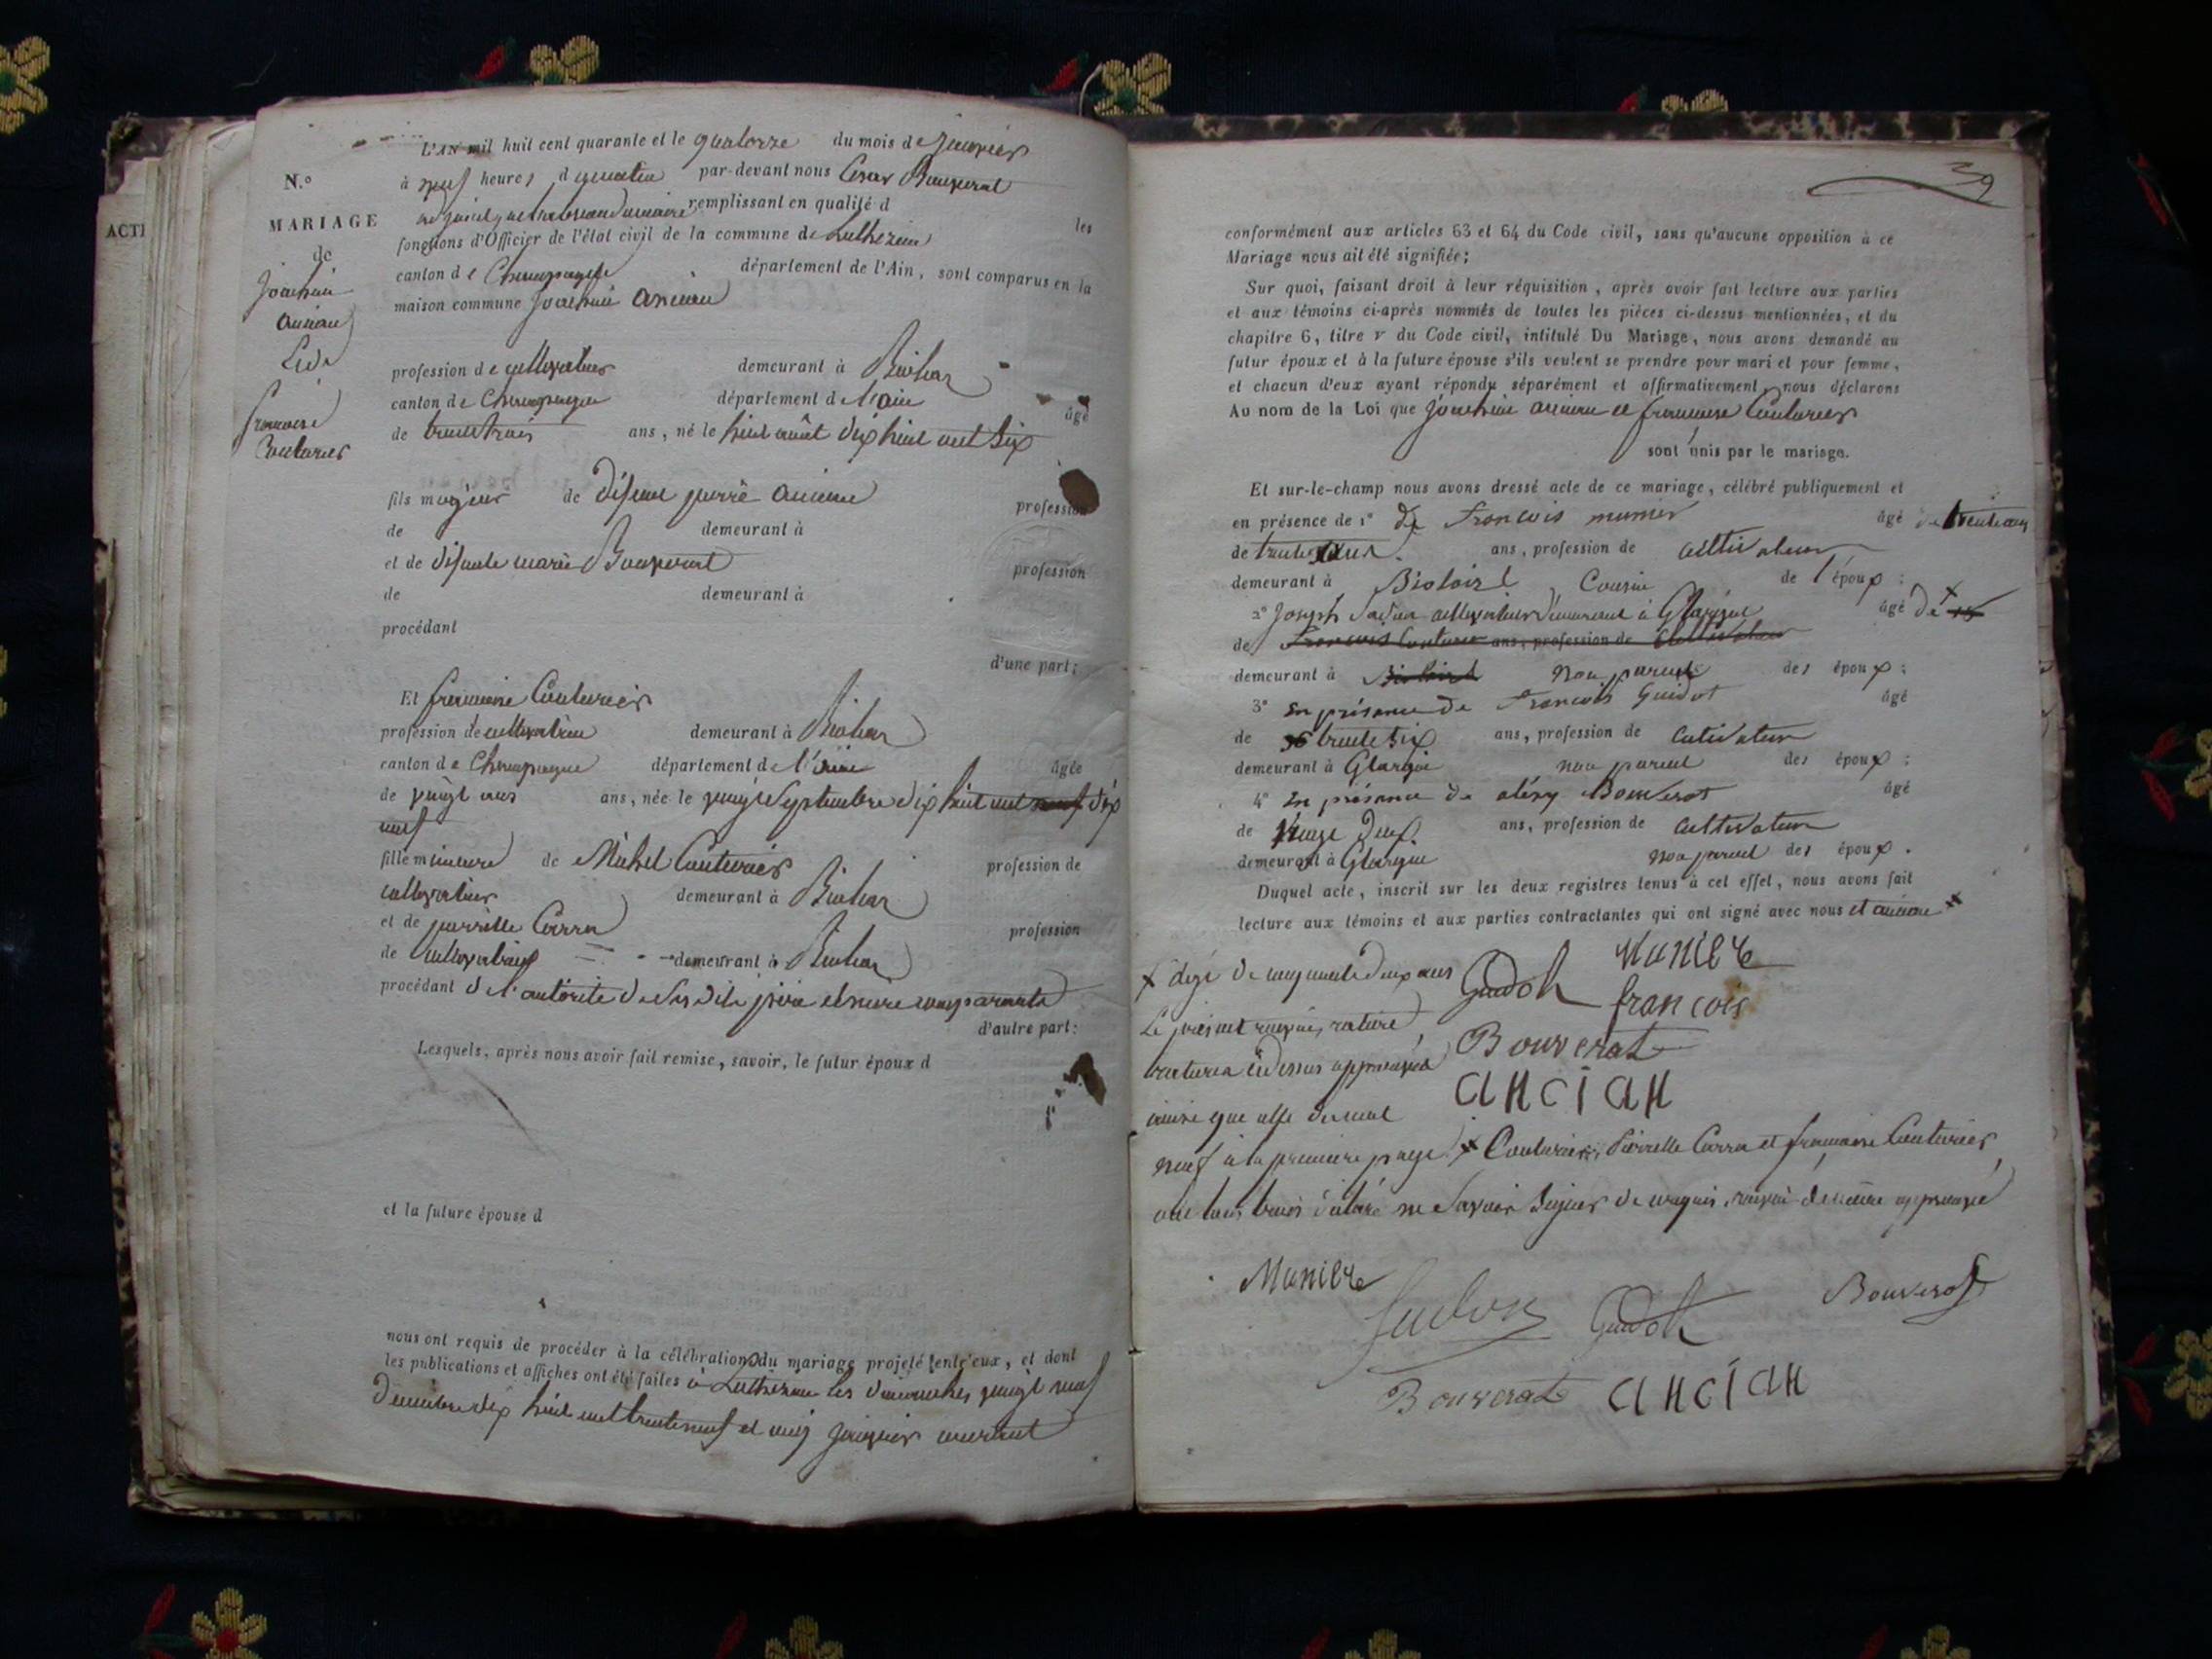 ACTE
N.o
MARIAGE
de
Joachim
ancian
Et de
francoise
Couturier
L'AN mil huit cent quarante et le quatorze du mois de Janvier
à neuf heures du matin par-devant nous Cesar Bouverat
adjoint remplissant en qualité d les
fonctions d'Officier de l'état civil de la commune de Luthezieu
canton de Champagne département de l'Ain, sont comparus en la
maison commune Joachim Ancian
profession de cultivateur demeurant à
canton de Champagne département de l'ain âgé
de trente trois ans, né le huit août dix huit cent six
fils majeur de défunt pierre ancian profession
de demeurant à
et de défunte marie Bouverat profession
de demeurant à
procédant
d'une part;
Et francoise Couturier
profession de cultivatrice demeurant à
canton de Champagne département de l'ain âgée
de vingt ans ans, née le vingt Septembre dix huit cent neuf dix
neuf
fille mineure de Michel Couturier profession de
cultivateur demeurant à
et de pierrette Carra profession
de cultivatrice demeurant à
procédant de l'autorité de ses dits père et mère comparants
d'autre part:
Lesquels, après nous avoir fait remise, savoir, le futur époux d
et la future épouse d
nous ont requis de procéder à la célébration du mariage projeté entr'eux, et dont
les publications et affiches ont été faites à Luthezieu les dimanches vingt neuf
Decembre dix huit cent trente neuf et cinq janvier courant
39
conformément aux articles 63 et 64 du Code civil, sans qu'aucune opposition à ce
Mariage nous ait été signifiée;
Sur quoi, faisant droit à leur réquisition, après avoir fait lecture aux parties
et aux témoins ci-après nommés de toutes les pièces ci-dessus mentionnées, et du
chapitre 6, titre v du Code civil, intitulé Du Mariage, nous avons demandé au
futur époux et à la future épouse s'ils veulent se prendre pour mari et pour femme,
et chacun d'eux ayant répondu séparément et affirmativement, nous déclarons
Au nom de la Loi que Joachim ancian et francoise Couturier
sont unis par le mariage.
Et sur-le-champ nous avons dressé acte de ce mariage, célébré publiquement et
en présence de 1° de François munier âgé de
de trente ans, profession de cultivateur
demeurant à Cousin de l'époux;
2° Joseph cultivateur demeurant à Glargin âgé de
de François Couturier ans, profession de Cultivateur
demeurant à non parent des époux;
3° En présence de François Guidot âgé
de 36 trente six ans, profession de Cutivateur
demeurant à Glargin non parent des époux;
4° En présence de Bouverat âgé
de deux ans, profession de Cultivateur
demeurant à Glargin non parent des époux.
Duquel acte, inscrit sur les deux registres tenus à cet effet, nous avons fait
lecture aux témoins et aux parties contractantes qui ont signé avec nous et ancian
âgé de cinquante deux ans Guidot Munier
Le présent renvoi, rature françois
ratures ci dessus approuvées Bouverat
ainsi que celle du mot anciaн
neuf à la première page Couturier, Pierrette Carra et francoise Couturier
ont tous trois déclaré ne Savoir Signer de ce requis, renvoi approuvé
Munier
Guidot Bouverat
Bouverat anciaн